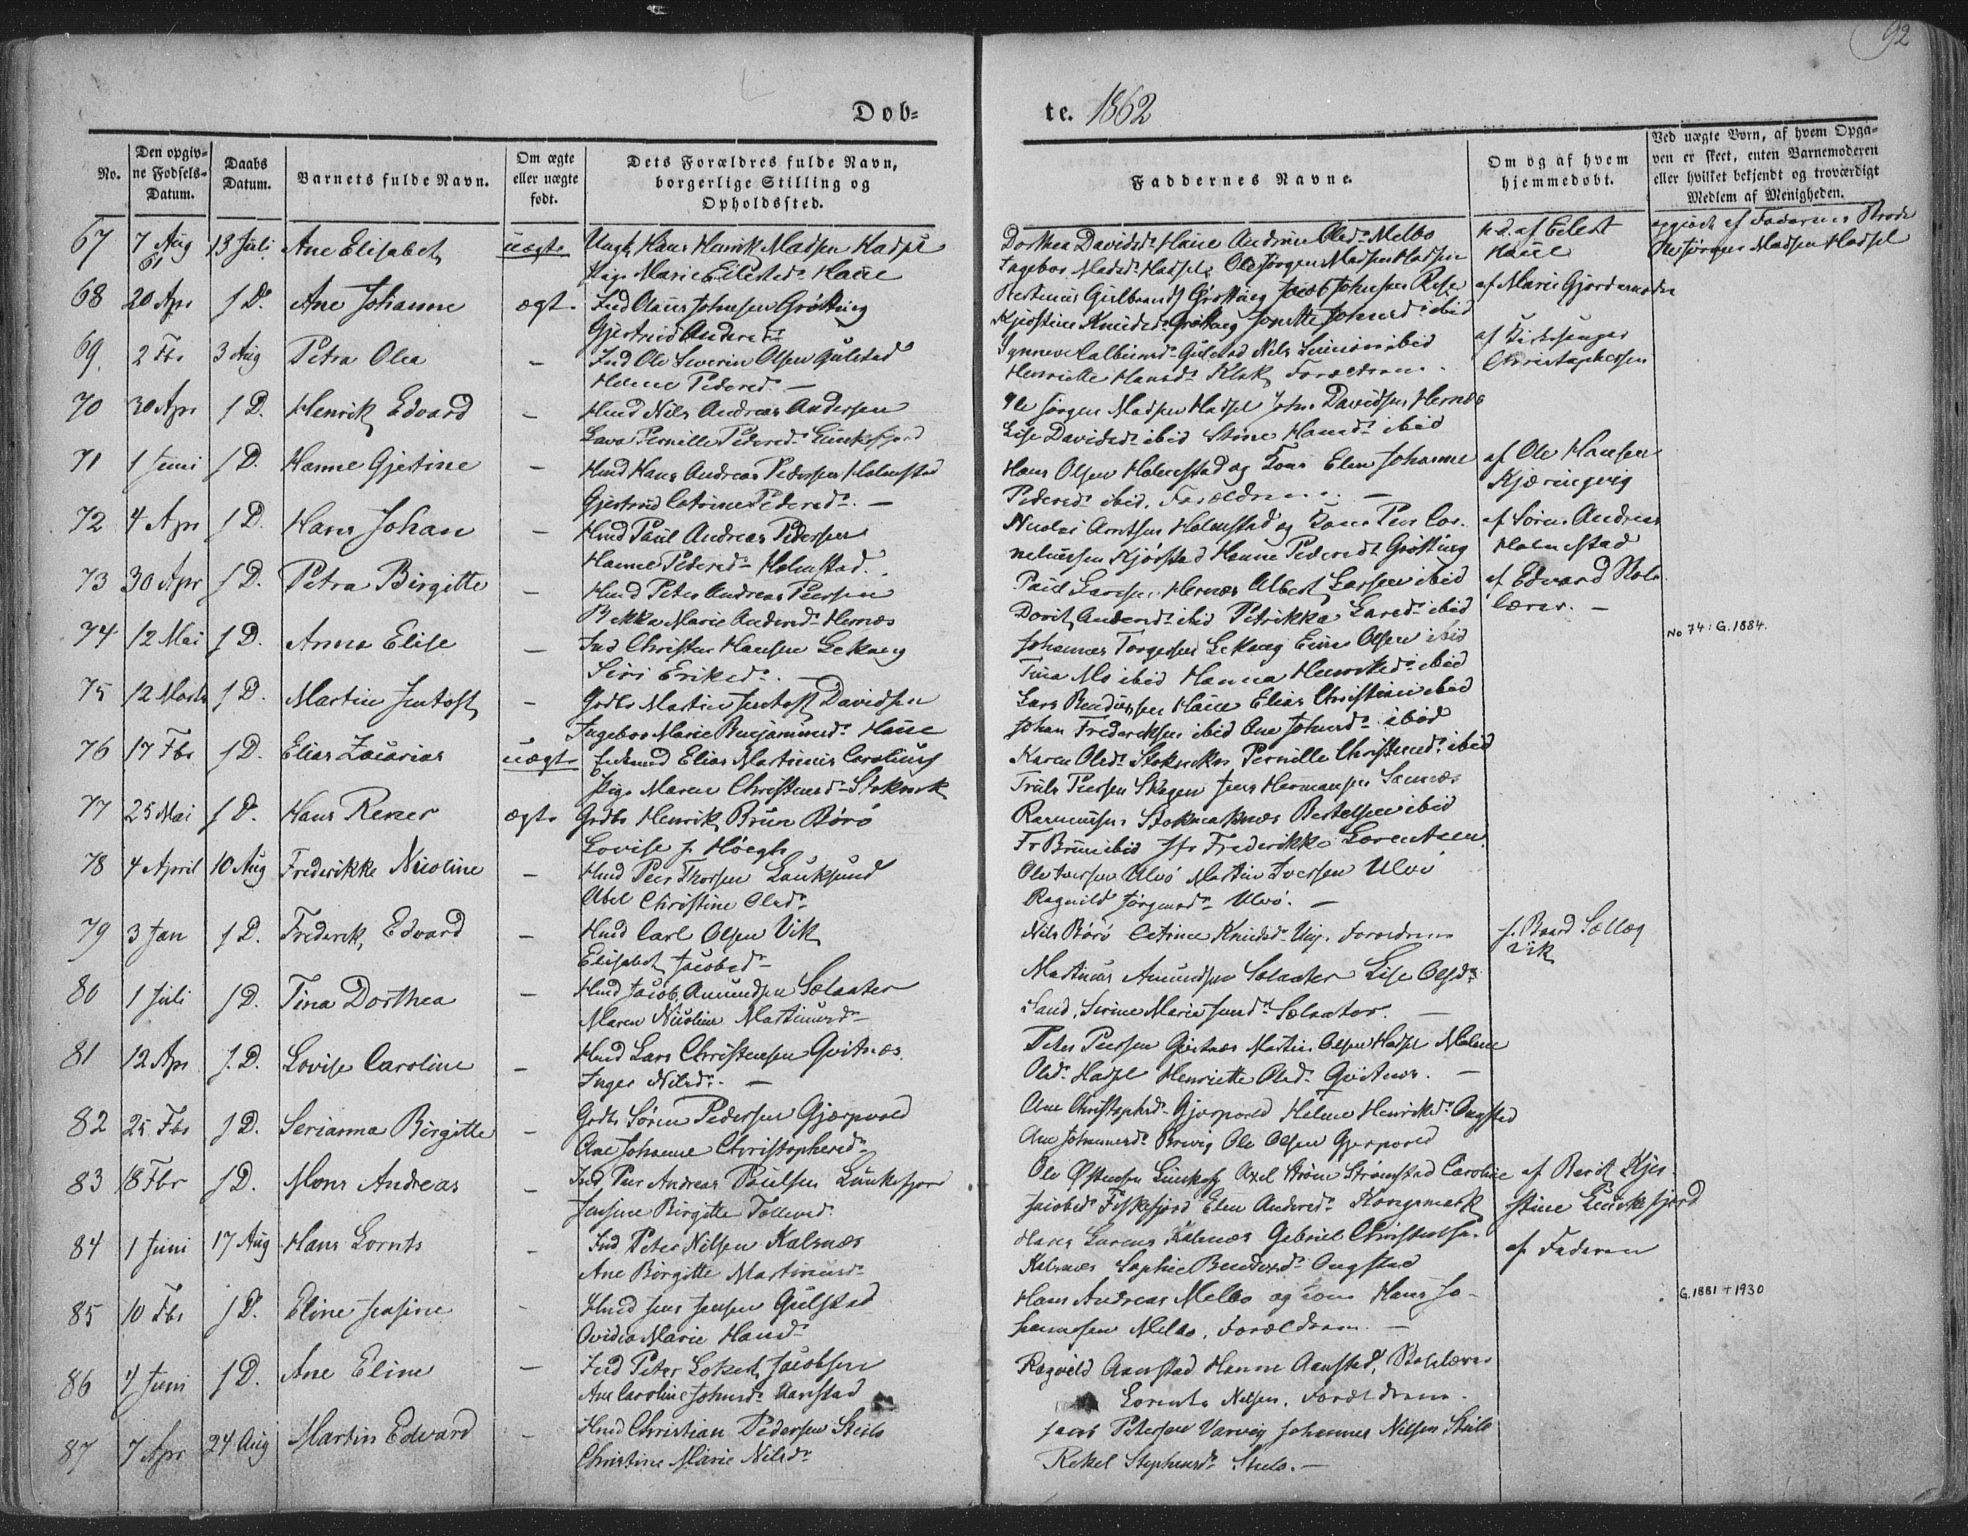 92
Dob=
te. 1862
No.
Den opgiv=
ne Fødsels=
Datum.
Daabs
Datum.
Barnets fulde Navn.
Om ægte
eller uægte
født.
Dets Forældres fulde Navn,
borgerlige Stilling og
Opholdssted.
Faddernes Navne.
Om og af hvem
hjemmedøbt.
Ved uægte Børn, af hvem Opga=
ven er skeet, enten Barnemoderen
eller hvilket bekjendt og troværdigt
Medlem af Menigheden.
67 7 Aug 61 13 Juli Ane Elisabet uægte Ungk Hans Henrik Madsen Hadsel
Pige Marie Eilertsd. Haue
Dorthea Davidsd. Haue Andrine Olsd. Melbo
Ingebor Madsd. Hadsel, Ole Jørgen Madsen Hadsel
hd. af Eilert
Haue
opgivet af Faderens Broder
Ole Jørgen Madsen Hadsel
68 20 Apr s D. Ane Johanne ægt. Ind Olaus Johnsen Grøtting
Gjertrud Andersd.
Grøtting Jacob Johnsen
Kjerstine Knudsd. Grøtting Jonette Johnsd. ibid
af Marie Gjordemoder
69. 2 Fbr 3 Aug Petra Olea — Ind Ole Severin Olsen Gulstad
Helene Pedersd. —
Gulstad Nils Simonsen ibid
Henriette Hansd. Klak Forældrene.
af Kirkesanger
Christophersen
70 30 Apr s D. Henrik Edvard — Hmd Nils Andreas Andersen
Lava Pernille Pedersd.
Ole Jørgen Madsen Hadsel John Davidsen Hernæs
Lise Davidsd. ibid Stine Hansd. ibid
71 1 Juni s D. Hanne Gjertine — Hmd Hans Andreas Pedersen Holmstad
Gjertrud Catrine Pedersd. —
Hans Olsen Holmstad og Kone Elen Johanne
Pedersd. ibid. Forældrene. —
af Ole Hansen
Kjæringvig
72 4 Apr s D. Hans Johan — Hmd Paul Andreas Pedersen
Hanne Pedersd. Holmstad.
Nicolai Arntsen Holmstad og Kone Peer Cor.
neliussen Kjørstad Hanne Pedersd. Grøtting
af Søren Andreas
Holmestad
73 30 Apr s D. Petra Birgitte — Hmd Peter Andreas Peersen
Bekka Marie Andersd. Hernæs
Paul Larsen Hernæs Albert Larsen ibid
Dorit Andersd. ibid Petrikka Larsd. ibid
af Edvard Skole
lærer. —
74 12 Mai s D. Anna Elise — Ind Christen Hansen Lekang
Siri Eriksd. —
Johannes Torgersen Lekang Olsen ibid
Tina Mo ibid Hanna Henriksd. ibid
No 74: G. 1884.
75 12 Marts s D. Martin Jentoft — Grdbr Martin Jentoft Davidsen
Ingebor Marie Benjaminsd. Haue
Haue Elias Christian ibid
Johan Fredriksen ibid Ane Johnsd. ibid
76 17 Fbr s D. Elias Zacarias uægt. Enkemd Elias Martinus Carolius
Pige Maren Christensd. Stoknæk
Karen Olsd. Pernille Christensd. ibid
Truls Peersen Skagen Jens Hermansen Sannæs
77 25 Mai s D. Hans Rener ægte Grdbr Henrik Bruun Børø
Lovise f. Høegh
Rasmussen Stokmarknæs Bertelsen ibid
Fr Bruun ibid Jfr Frederikke Lorentzen.
78 4 April 10 Aug Frederikke Nicoline — Hmd Peer Thorsen Lauksund
Abel Christine Olsd.
Ole Iversen Ulvø Martin Iversen Ulvø
Ragnild Jørgensd. Ulvø. —
79 3 Jan s D. Frederik Edvard — Hmd Carl Olsen Vik
Elisabet Jacobsd. —
Nils Børø Catrine Knudsd. Forældrene
Vik
80 1 Juli s D. Tina Dorthea — Hmd Jacob Amundsen Sælaater
Maren Nicoline Martinusd.
Martinus Amundsen Sælaater Lise Olsd.
Sand, Serine Marie Jensd. Sælaater. —
81 12 Apr s. D. Lovise Caroline — Hmd Lars Christensen Gvitnæs.
Inger Nilsd. —
Peter Peersen Gvitnæs Martin Olsen Hadsel Malene
Olsd. Hadsel Henriette Olsd. Gvitnæs. —
82 25 Fbr s D. Serianna Birgitte — Grdbr Søren Pedersen Gjærpvold
Ane Johanne Christophersd.
Ane Christophersd. Helene Henriksd. Ongstad
Ane Johannesd. Ole Olsen
83 18 Fbr s D. Mons Andreas — Ind Peer Andreas Paulsen Lunkefjord
Jensine Birgitte Tollevsd.
Ole Østensen Axel Strøm Strømstad Caroline
Jacobsd. Fiskefjord Elen Andersd. Kongsmark
af Berit Kjer
stine
84 1 Juni 17 Aug Hans Lornts — Ind Peter Nilsen Kalsnæs
Ane Birgitte Martinusd.
Hans Larens Kalsnæs Gabriel Christensen
Kalsnæs Sophie Ongstad
af Faderen
85 10 Fbr s D. Eline Jensine — Hmd Jens Jensen Gulstad
Ovidia Marie Hansd.
Hans Andreas Melbo og Kone Hans Jo-
hannesen Melbo, Forældrene. —
G. 1881 + 1930
86 4 Juni s D. Ane Eline — Ind Peter Jacobsen
Ane Caroline Johnsd. Aanstad
Ragnild Aanstad Hanne Aanstad, Skolelærer
Lorents Nilsen, Forældrene.
87 7 Apr 24 Aug Martin Edvard — Hmd Christian Pedersen Steilo
Christine Marie Nilsd.
Jacob Petersen Varvig Johannes Nilsen Steilo
Rekel Stephensd. Steilo. —